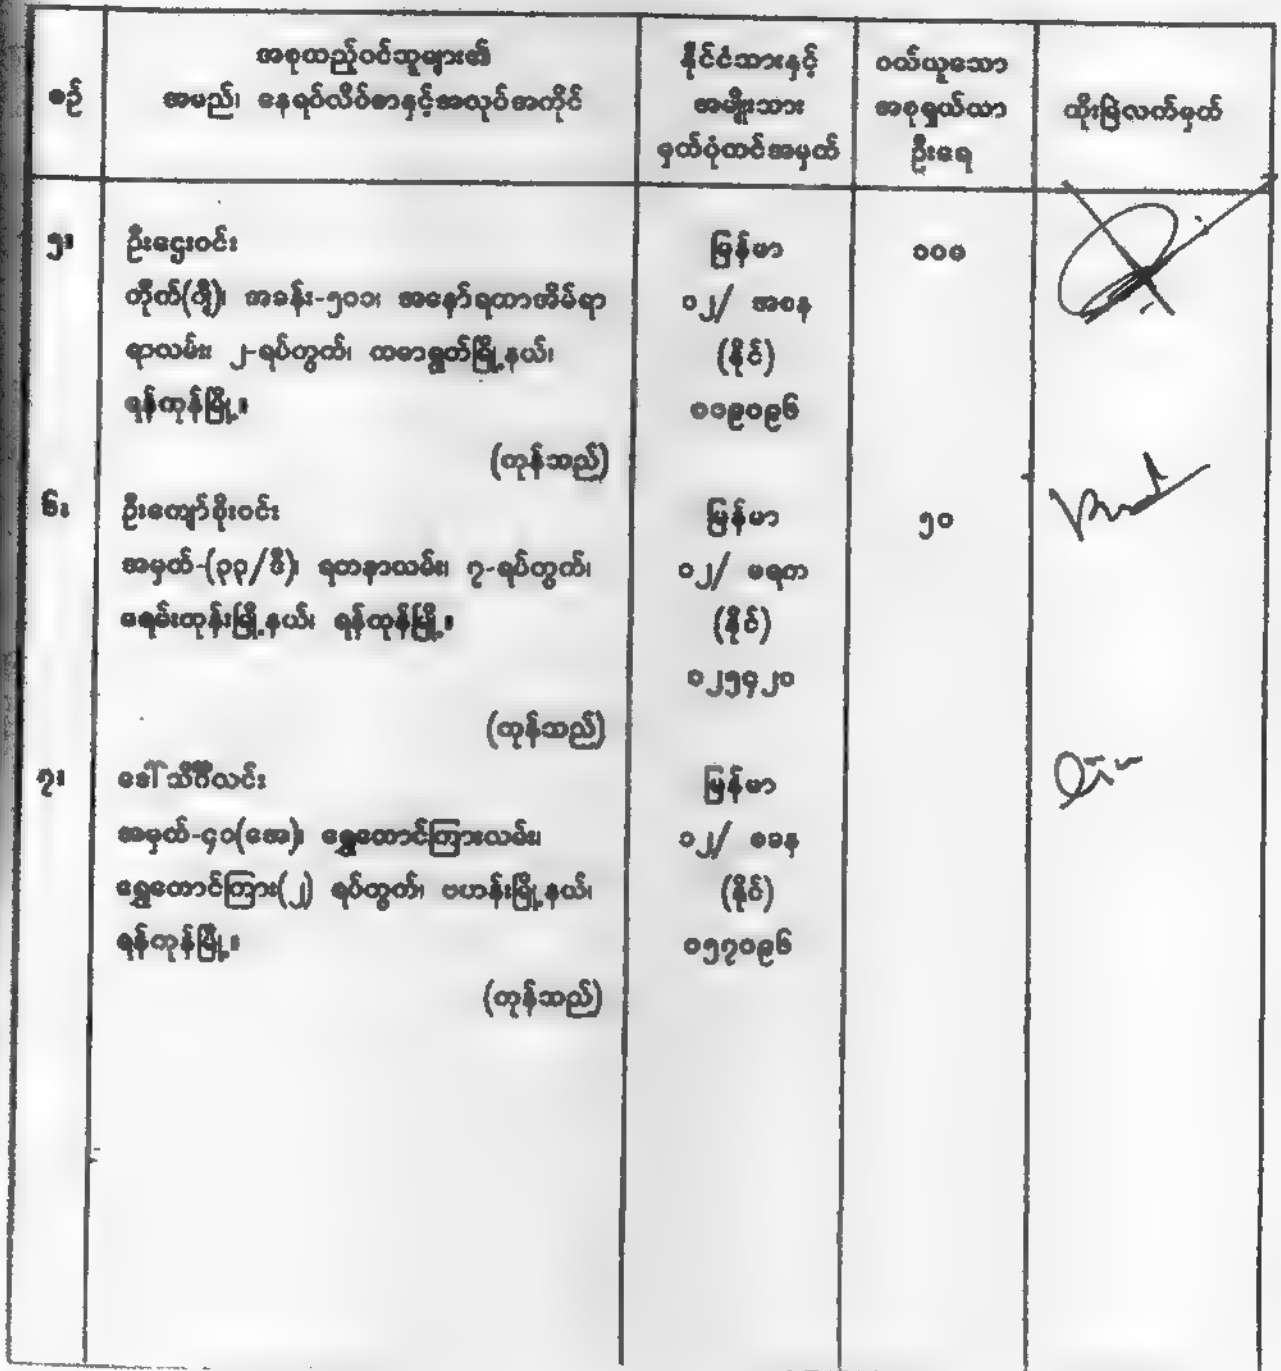 စဉ်
အစုထည့်ဝင်သူများ၏
အမည်၊ နေရပ်လိပ်စာနှင့်အလုပ်အကိုင်
နိုင်ငံသားနှင့်
အမျိုးသား
မှတ်ပုံတင်အမှတ်
ဝယ်ယူသော
အစုရှယ်ယာ
ဦးရေ
ထိုးမြဲလက်မှတ်
၅။
ဦးဌေးဝင်း
တိုက်(ဂျီ)၊ အခန်း-၅၀၁၊ အနော်ရထာအိမ်ရာ
ရာလမ်း၊ ၂-ရပ်ကွက်၊ ကမာရွတ်မြို့နယ်၊
ရန်ကုန်မြို့။
(ကုန်သည်)
မြန်မာ
၁၂/ အစန
(နိုင်)
၀၀၉၀၉၆
၁၀၀
၆။
ဦးကျော်စိုးဝင်း
အမှတ်-(၃၃/ဒီ)၊ ရတနာလမ်း၊ ၇-ရပ်ကွက်၊
မြို့နယ်၊ ရန်ကုန်မြို့။
(ကုန်သည်)
မြန်မာ
၁၂/ မရက
(နိုင်)
၀၂၅၄၂၀
၅၀
၇။
ဒေါ်သိင်္ဂီလင်း
အမှတ်-၄၁(အေ)၊ ရွှေတောင်ကြားလမ်း၊
ရွှေတောင်ကြား(၂) ရပ်ကွက်၊ ဗဟန်းမြို့နယ်၊
ရန်ကုန်မြို့။
(ကုန်သည်)
မြန်မာ
၁၂/ စခန
(နိုင်)
၀၅၇၀၉၆